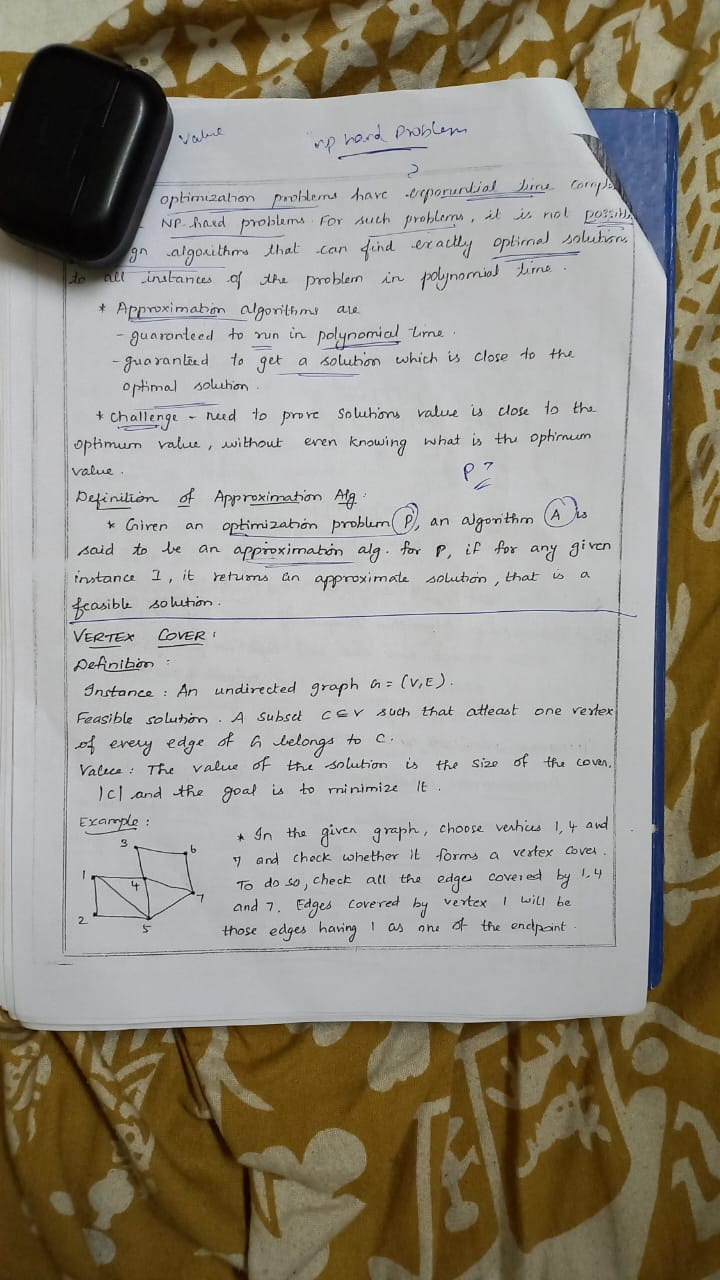 value
np hard Problem
?
optimization problems have exponential time
NP-hard problems. For such problems, it is not possible
gn algorithms that can find exactly optimal solutions
to all instances of the problem in polynomial time.
* Approximation algorithms are
- guaranteed to run in polynomial time.
- guaranteed to get a solution which is close to the
optimal solution.
* challenge - need to prove solutions value is close to the
optimum value, without even knowing what is the optimum
value.
P?
Definition of Approximation Alg:
* Given an optimization problem P, an algorithm A is
said to be an approximation alg. for P, if for any given
instance I, it returns an approximate solution, that is a
feasible solution.
VERTEX COVER:
Definition:
Instance: An undirected graph G = (V,E).
Feasible solution. A subset C ⊆ V such that atleast one vertex
of every edge of G belongs to C.
Value: The value of the solution is the size of the cover,
|C| and the goal is to minimize it.
Example:
* In the given graph, choose vertices 1, 4 and
7 and check whether it forms a vertex cover.
To do so, check all the edges covered by 1, 4
and 7. Edges covered by vertex 1 will be
those edges having 1 as one of the endpoint.
3
6
1
4
7
2
5